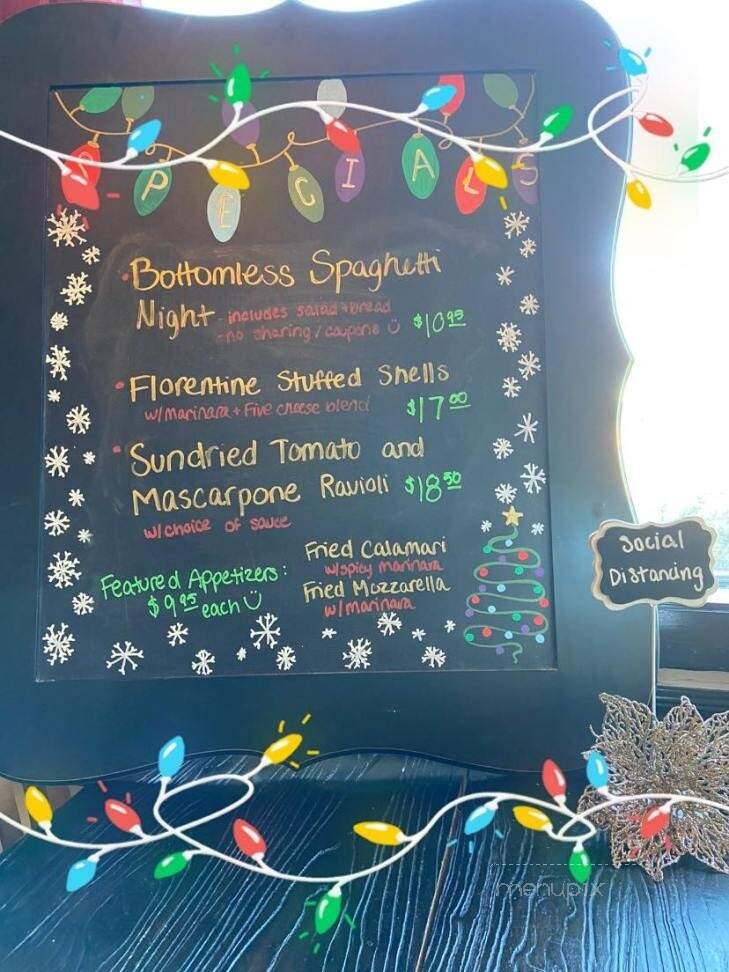 SPECIALS
Bottomless Spaghetti
Night - includes salad + bread
- no sharing / coupons $10 95
Florentine Stuffed Shells
w/ marinara + Five cheese blend $17 00
Sundried Tomato and
Mascarpone Ravioli $18 50
w/ choice of sauce
Featured Appetizers:
$9 95 each
Fried Calamari
w/ spicy marinara
Fried Mozzarella
w/ marinara
Social
Distancing
menupix